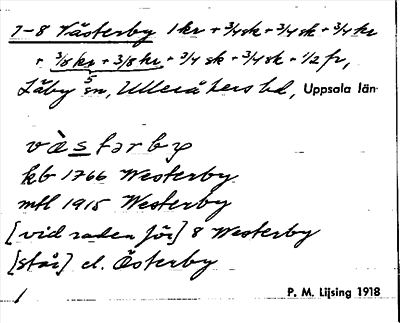 7-8 Västerby 1 kr + 3/4 sk + 3/4 sk + 3/4 kr
+ 3/8 kr + 3/8 kr + 3/4 sk + 3/4 sk + 1/2 fr,
5
Läby sn, Ulleråkers hd, Uppsala län
vàstərby
kb 1766 Westerby
mtl 1915 Westerby
[vid raden för] 8 Westerby
[står] el. Österby
1
P. M. Lijsing 1918